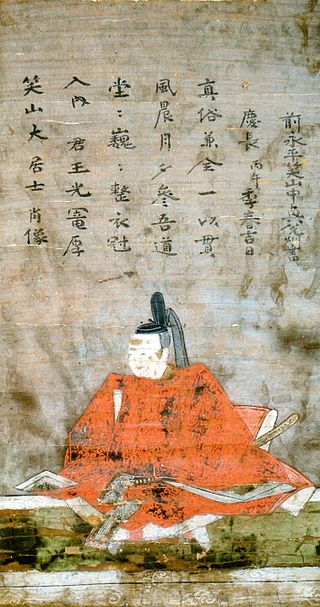 笑山大居士肖像
入内 君王光寵厚
堂〻巍〻整衣冠
風晨月夕參吾道
真俗兼全一以貫
慶長 丙午 季春吉日
前永平 書